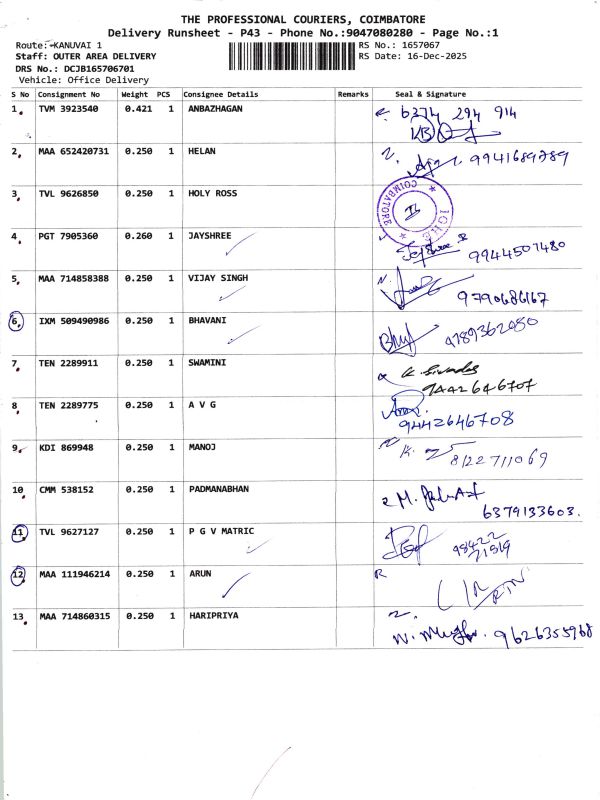 THE PROFESSIONAL COURIERS, COIMBATORE
Delivery Runsheet - P43 - Phone No.:9047080280 - Page No.:1
Route: KANUVAI 1
Staff: OUTER AREA DELIVERY
DRS No.: DCJB165706701
Vehicle: Office Delivery
RS No.: 1657067
RS Date: 16-Dec-2025
S No Consignment No Weight PCS Consignee Details Remarks Seal & Signature
1 TVM 3923540 0.421 1 ANBAZHAGAN 6374 294 914
2 MAA 652420731 0.250 1 HELAN 9941689789
3 TVL 9626850 0.250 1 HOLY ROSS COIMBATORE
4 PGT 7905360 0.260 1 JAYSHREE 9944507480
5 MAA 714858388 0.250 1 VIJAY SINGH 9790686167
6 IXM 509490986 0.250 1 BHAVANI 9789362080
7 TEN 2289911 0.250 1 SWAMINI 9442646707
8 TEN 2289775 0.250 1 A V G 9442646708
9 KDI 869948 0.250 1 MANOJ K. 8122711069
10 CMM 538152 0.250 1 PADMANABHAN 6379133603.
11 TVL 9627127 0.250 1 P G V MATRIC
12 MAA 111946214 0.250 1 ARUN R
13 MAA 714860315 0.250 1 HARIPRIYA 9626355968